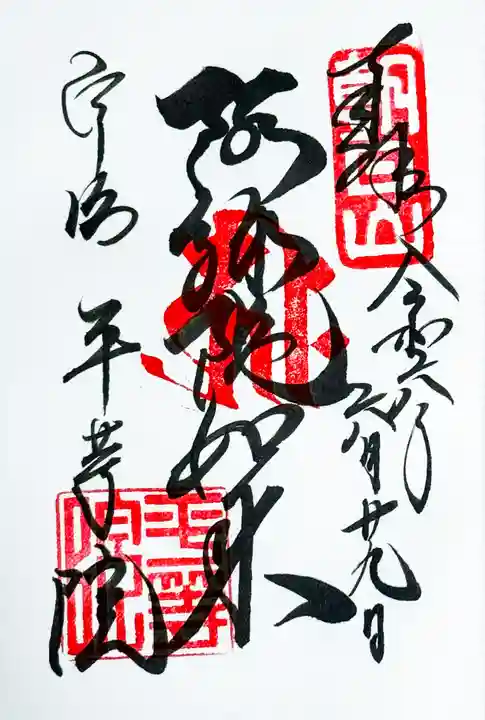 奉拝
令和六年
六月廿九日
朝日山
阿弥陀如来
宇治
平等院
平等院